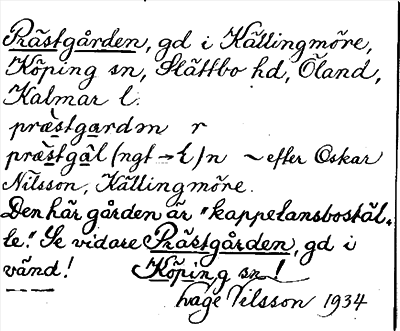 Prästgården, gd i Kättingmöre,
Köping sn, Slättbo hd, Öland,
Kalmar l.
præstgardɷn r
præstgål (ngt → ł) n ~ efter Oskar
Nilsson, Kättingmöre.
Den här gården är "kappelansbostäl-
le." Se vidare Prästgården, gd i
vänd! Köping sn!
Åge Nilsson 1934